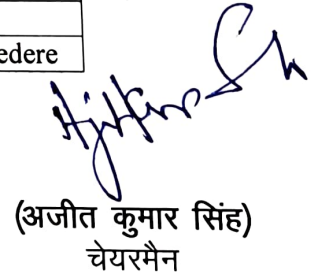 edere
(अजीत कुमार सिंह)
चेयरमैन